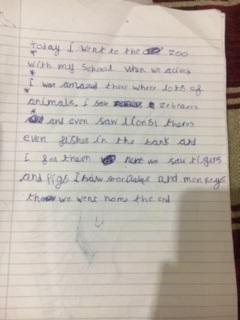 Today I went to the zoo
with my school when we
I was amazed there where lots of
animals. i saw 2 zebraers
and even saw lions! there's
even fishes in the tank and
I fed them next we saw tigers
and Pigs I saw and monkeys
we went home the end